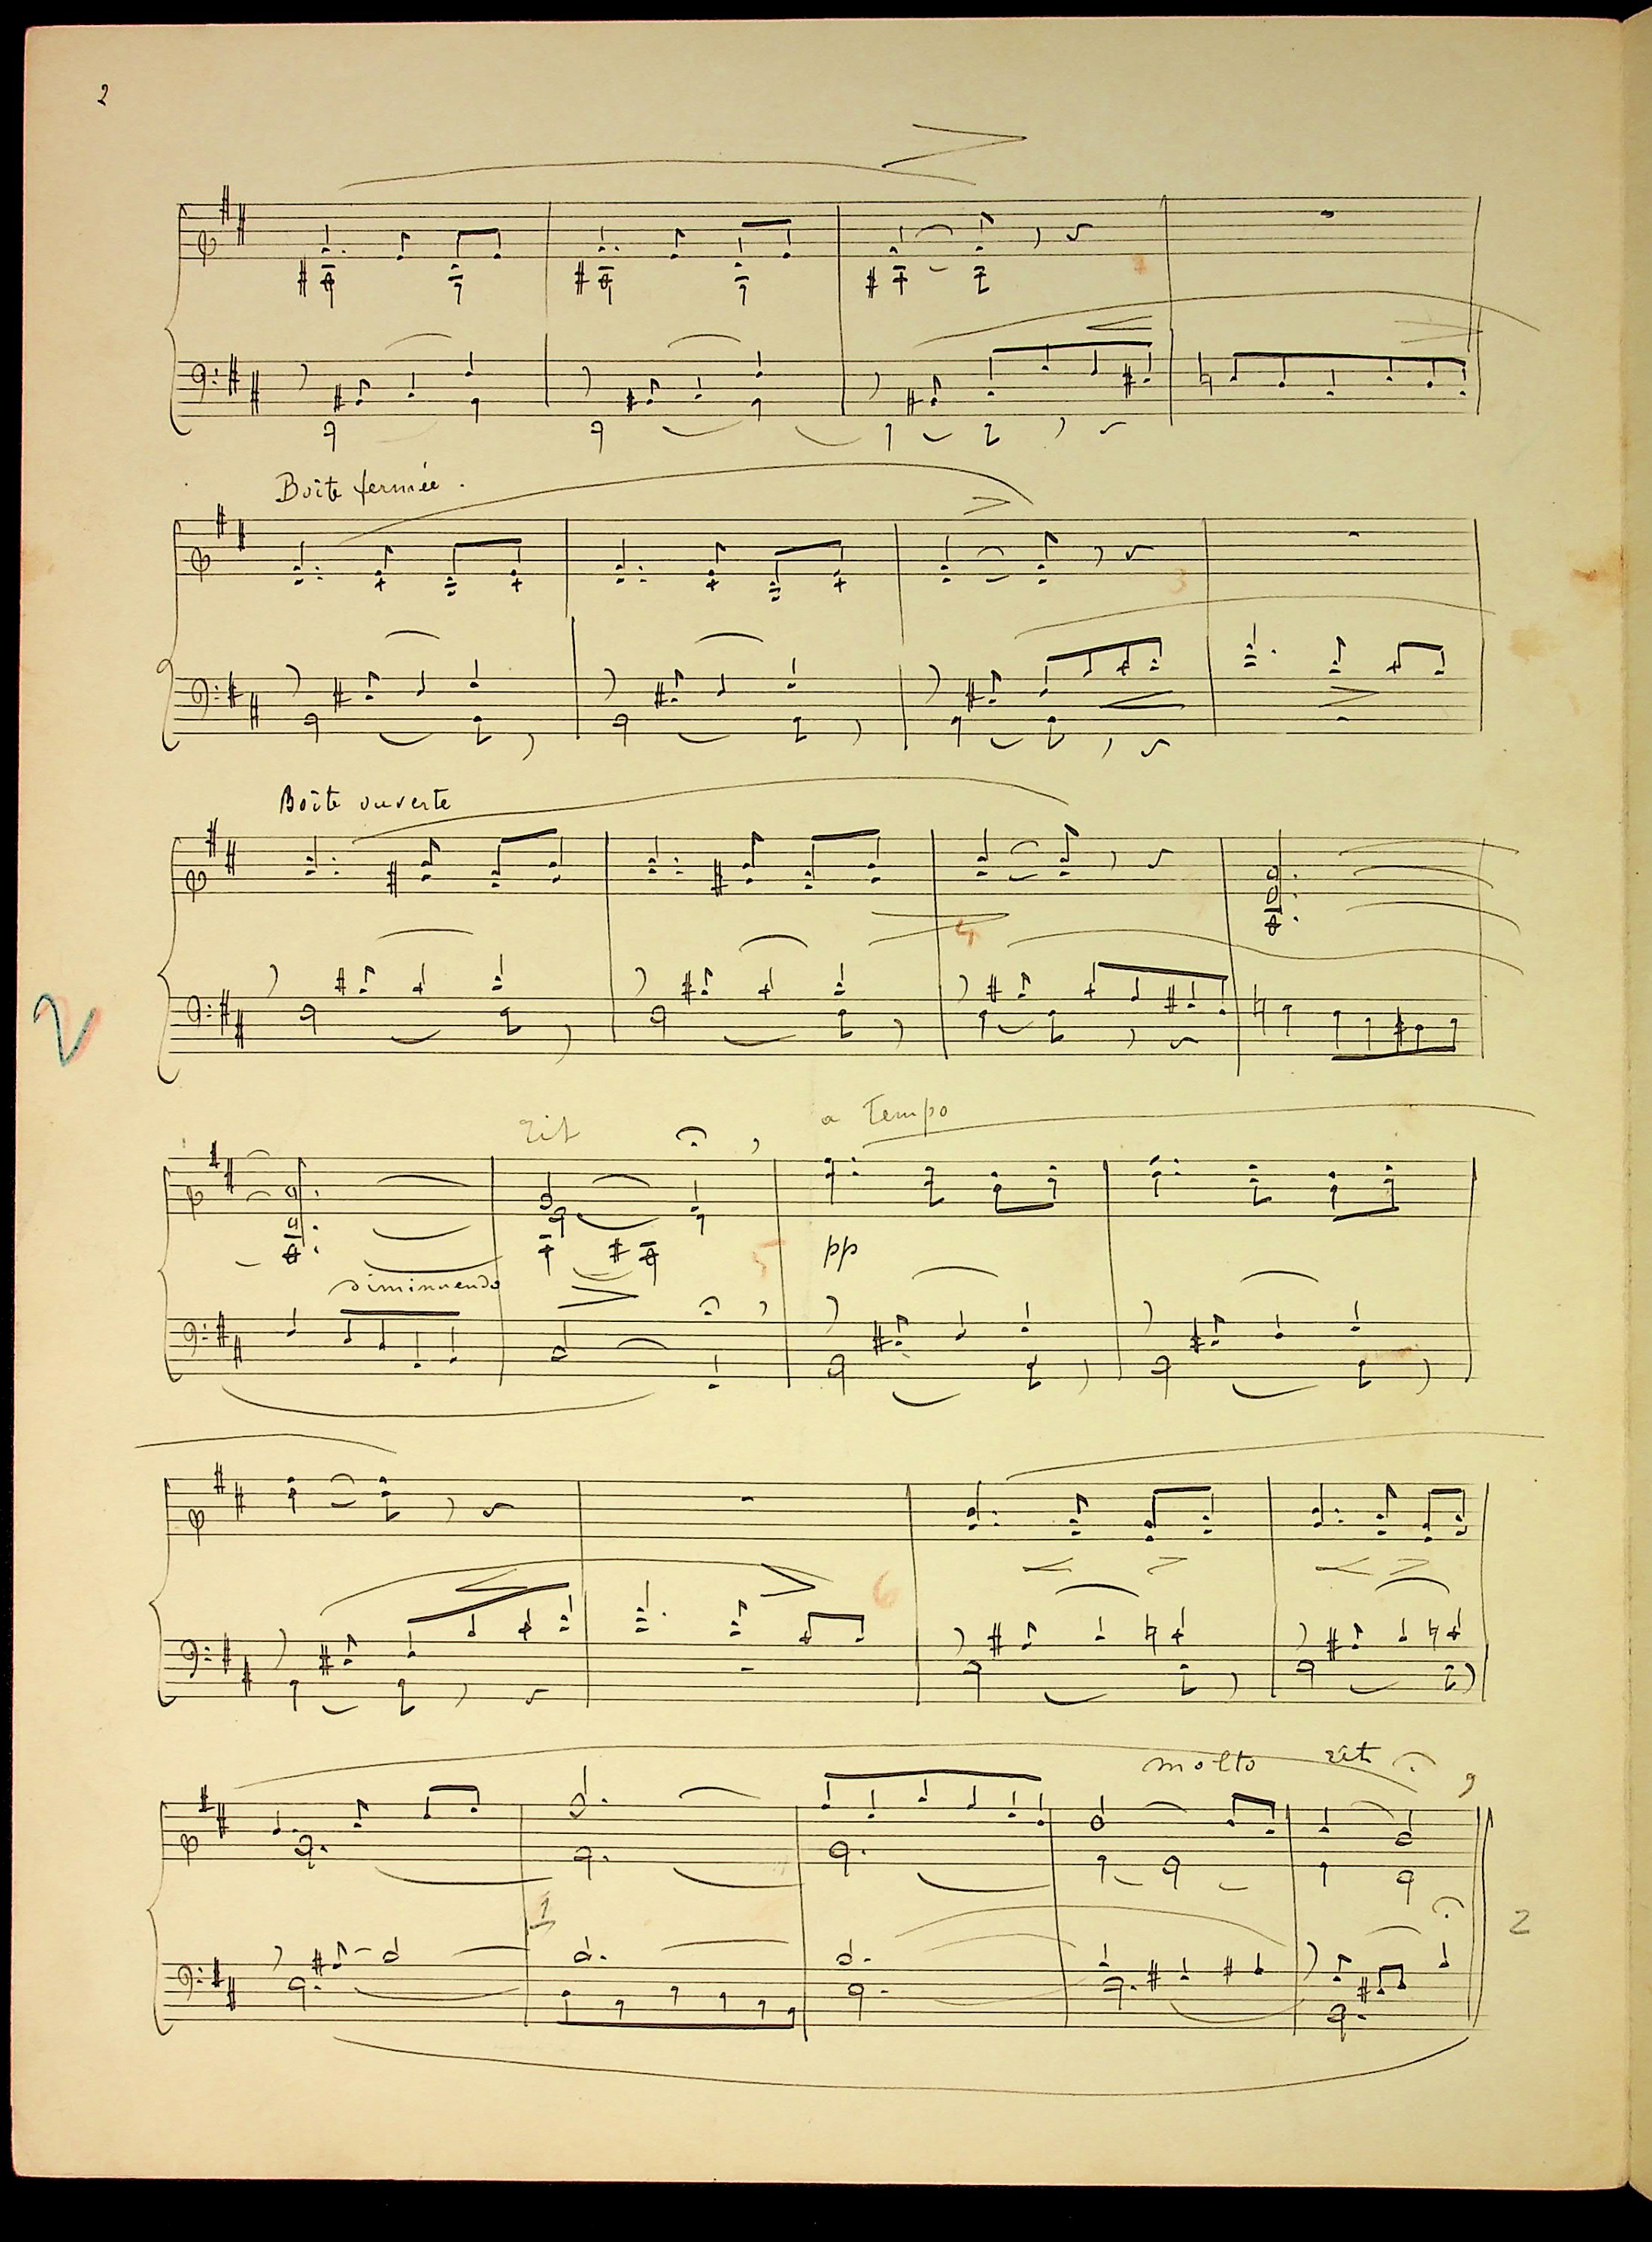 2
Boîte fermée.
3
Boîte ouverte
4
2
rit
a Tempo
5
pp
diminuendo
6
molto rit
1
2